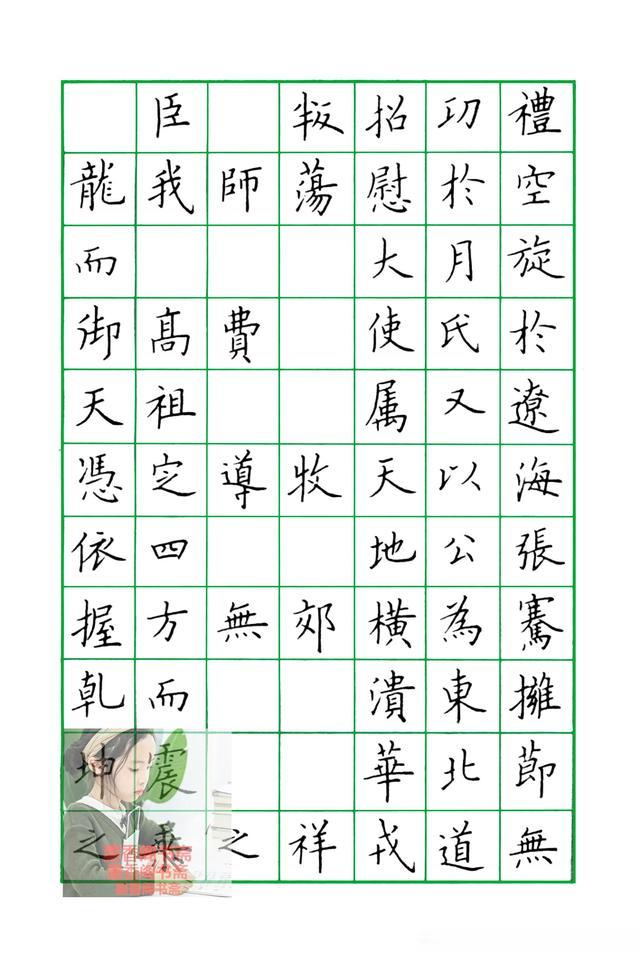 禮空旋於遼海張騫擁節無
功於月氏又以公為東北道
招慰大使属天地橫潰華戎
叛蕩牧郊祥
師費導無之
臣我髙祖定四方而震乘
龍而御天憑依握乾坤之